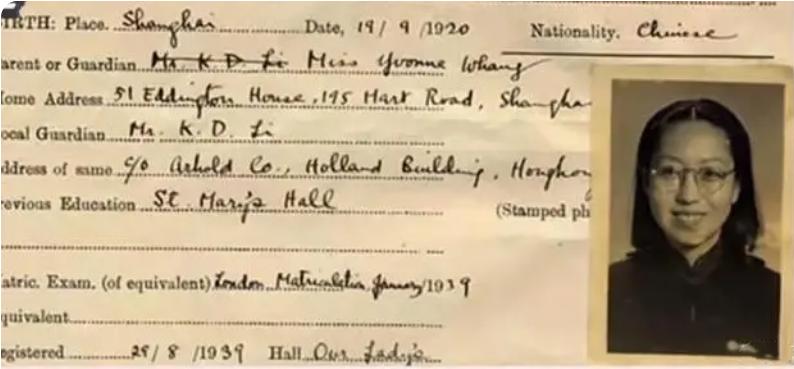 IRTH: Place. Shanghai Date, 19/ 9 /1920 Nationality. Chinese
arent or Guardian Mr. K. D. Li Miss Yvonne Whang
ome Address 51 Eddington House, 195 Hart Road, Shangha
ocal Guardian Mr. K. D. Li
ddress of same c/o Arhold Co., Holland Building, Hongkon
evious Education St. Mary's Hall (Stamped ph
atric. Exam. (of equivalent) London Matriculation January/1939
quivalent
egistered 29/ 8 /1939 Hall Our Lady's